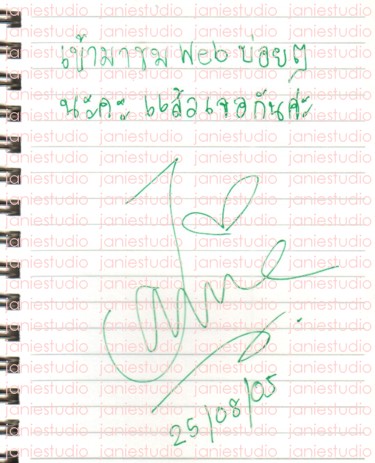 เข้ามาชม Web บ่อยๆ
นะคะ แล้วเจอกันค่ะ
Janie
25/08/05
janiestudio